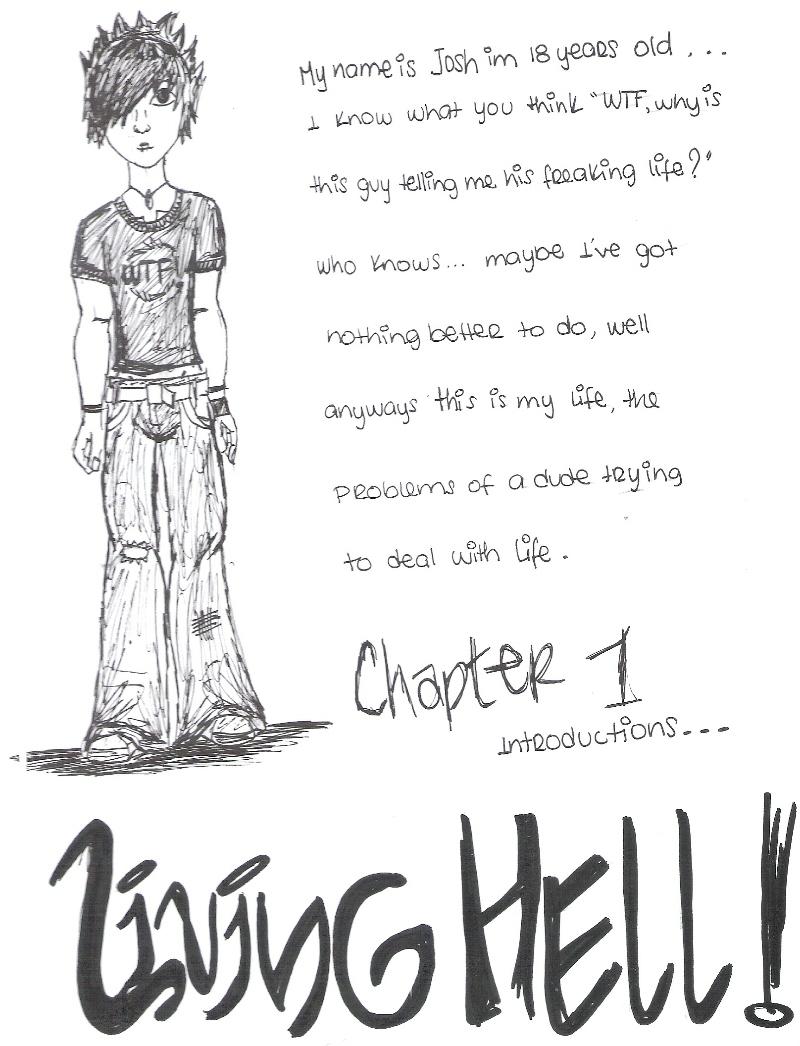 My name is Josh im 18 years old ...
I know what you think "WTF, why is
this guy telling me his freaking life?"
who knows... maybe I've got
nothing better to do, well
anyways this is my life, the
problems of a dude trying
to deal with life.
WTF
Chapter 1
Introductions...
Living HELL!